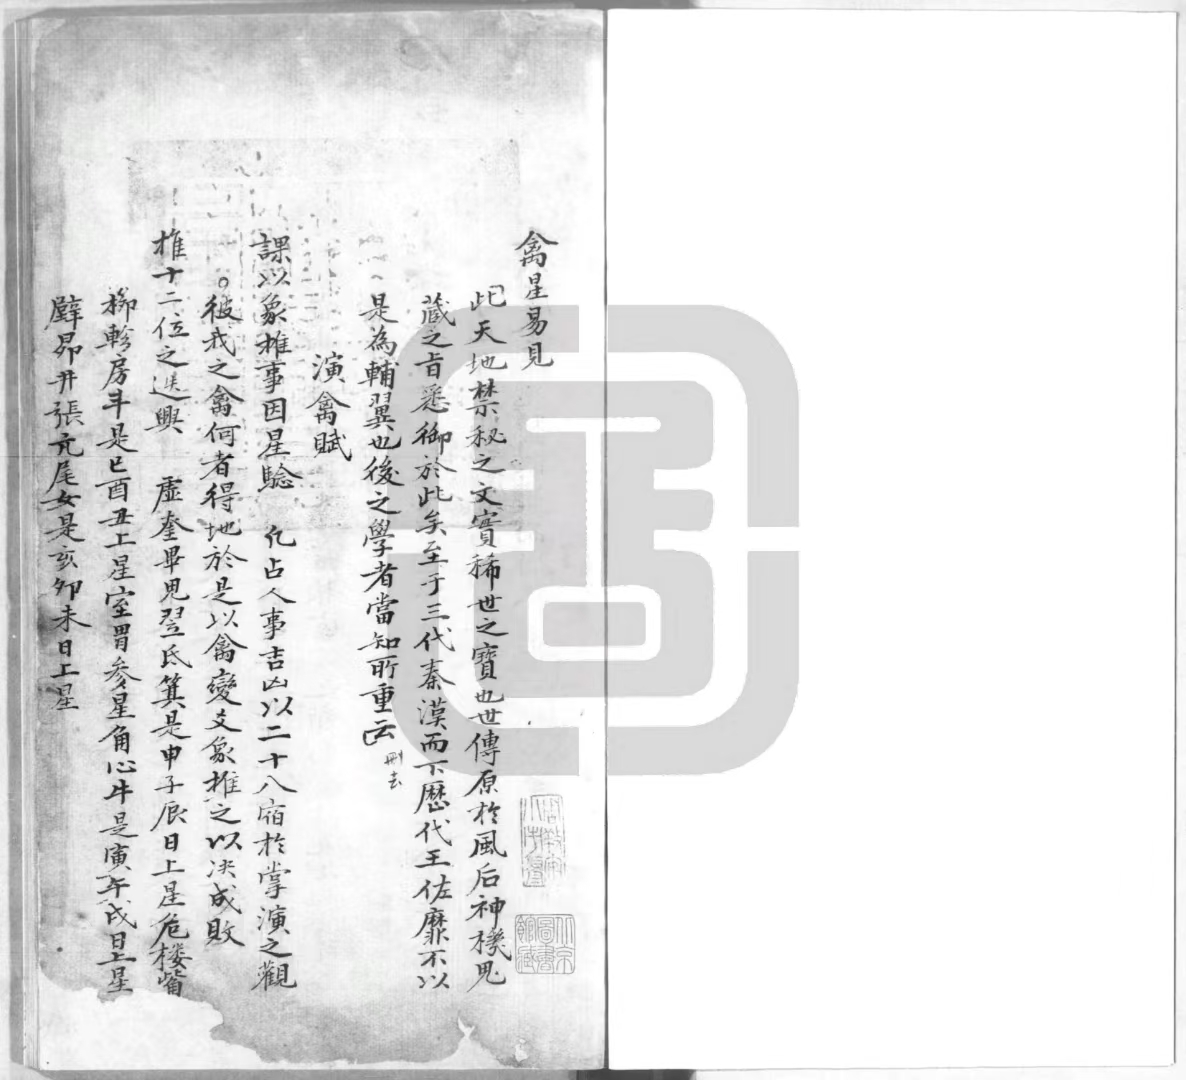 禽星易見
此天地禁秘之文實稀世之寶也世傳原於風后神機鬼
藏之旨悉御於此矣至于三代秦漢而下歷代王佐靡不以
是為輔翼也後之學者當知所重云
刪去
演禽賦
課以象推事因星驗 凡占人事吉凶以二十八宿於掌演之觀
彼我之禽何者得地於是以禽變爻象推之以决成敗
推十二位之迭興 虛奎畢鬼翌氐箕是申子辰日上星危楼觜
柳軫房斗是巳酉丑上星室胃参星角心牛是寅午戌日上星
壁昴井張亢尾女是亥卯未日上星
北京圖書館藏